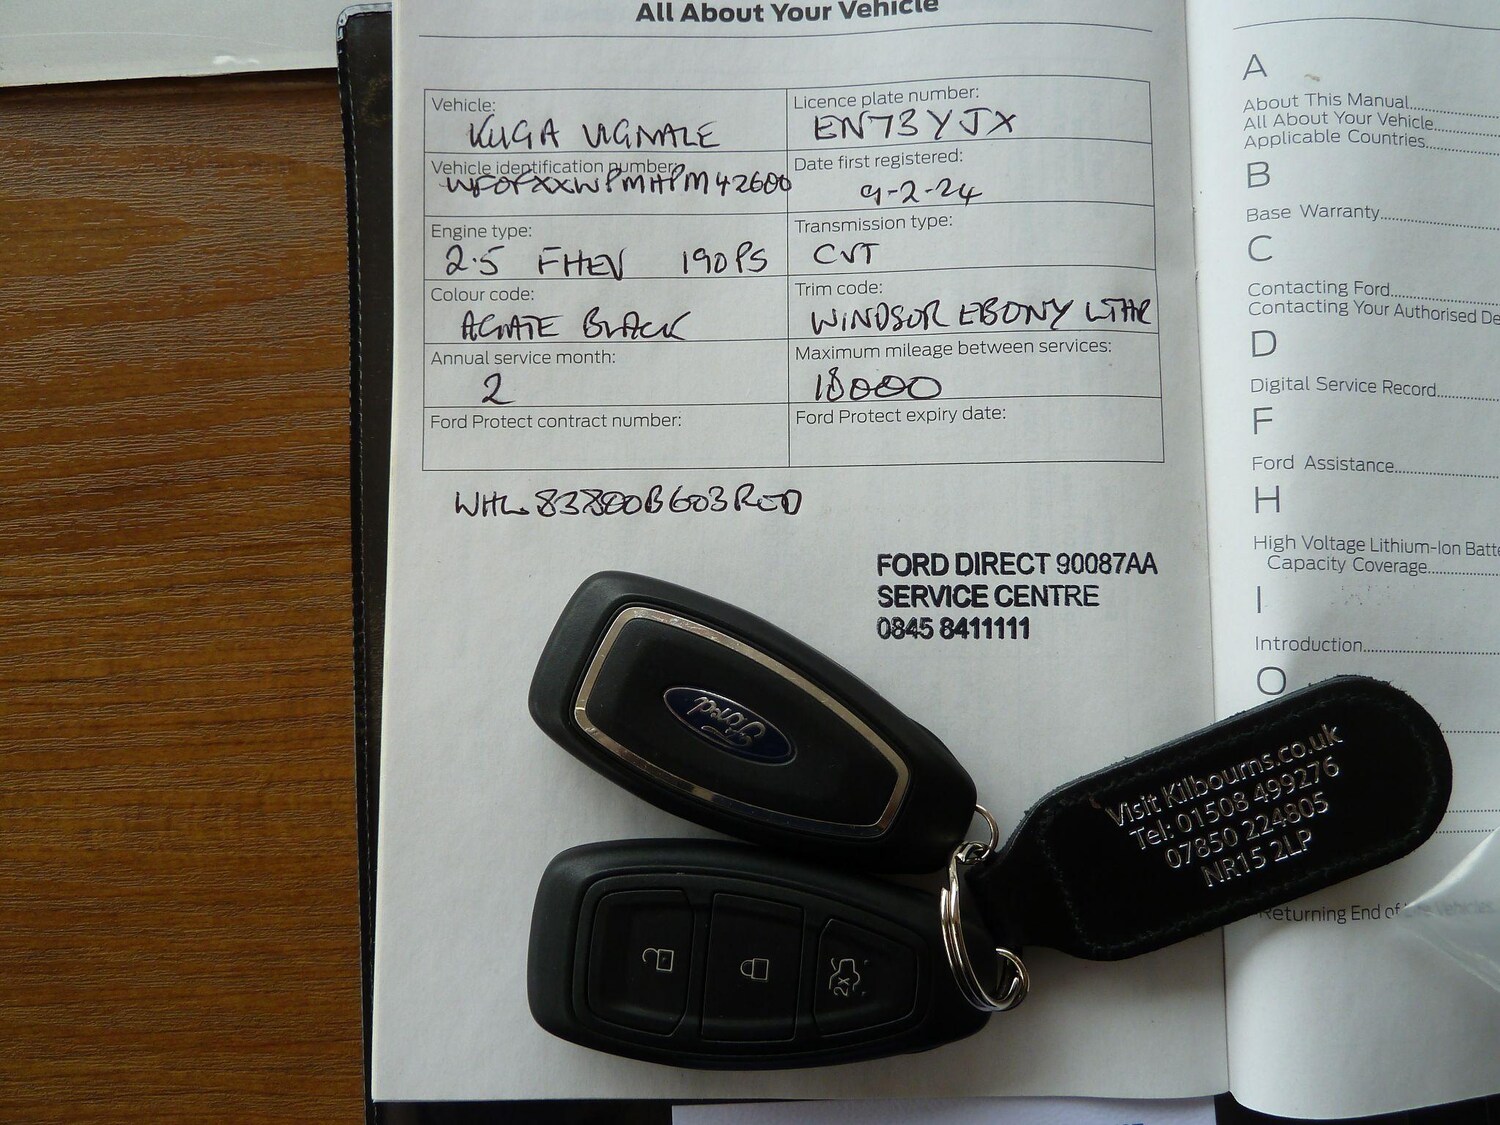 All About Your Vehicle
Vehicle:
KUGA VIGNALE
Licence plate number:
EN73YJX
Vehicle identification number:
WF0FXXWPMHPM42600
Date first registered:
9-2-24
Engine type:
2.5 FHEV 190PS
Transmission type:
CVT
Colour code:
AGATE BLACK
Trim code:
WINDSOR EBONY LTHR
Annual service month:
2
Maximum mileage between services:
18000
Ford Protect contract number:
Ford Protect expiry date:
FORD DIRECT 90087AA
SERVICE CENTRE
0845 8411111
Ford
2x
Visit Kilbourns.co.uk
Tel: 01508 499276
07850 224805
NR15 2LP
A
About This Manual
All About Your Vehicle
Applicable Countries
B
Base Warranty
C
Contacting Ford
Contacting Your Authorised De
D
Digital Service Record
F
Ford Assistance
H
High Voltage Lithium-Ion Batte
Capacity Coverage
I
Introduction
O
Returning End of